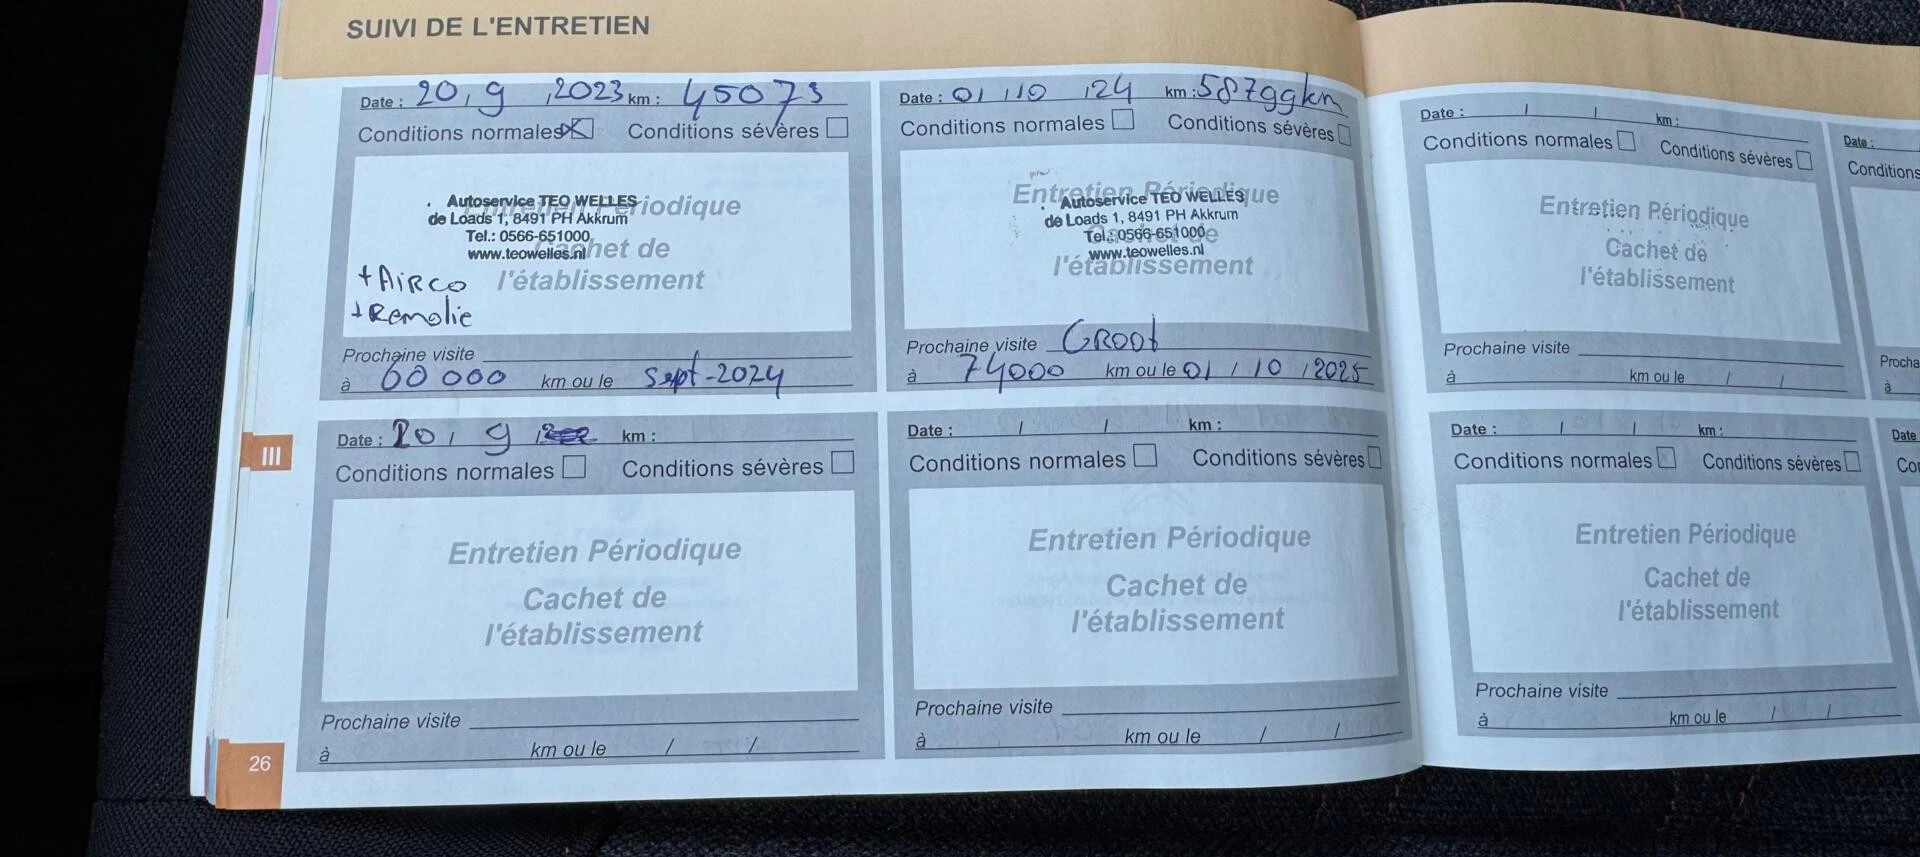 SUIVI DE L'ENTRETIEN
Date : 20 / 9 / 2023 km : 45073
Conditions normales Conditions sévères
Autoservice TEO WELLES
de Loads 1, 8491 PH Akkrum
Tel.: 0566-651000
www.teowelles.nl
Entretien Périodique
Cachet de
l'établissement
+ Airco
+ Remolie
Prochaine visite
à 60 000 km ou le sept-2024
Date : 01 / 10 / 24 km : 58799km
Conditions normales Conditions sévères
Entretien Périodique
Autoservice TEO WELLES
de Loads 1, 8491 PH Akkrum
Tel.: 0566-651000
www.teowelles.nl
Cachet de
l'établissement
Prochaine visite Groot
à 74000 km ou le 01 / 10 / 2025
Date : / / km :
Conditions normales Conditions sévères
Entretien Périodique
Cachet de
l'établissement
Prochaine visite
à km ou le / /
Date :
Conditions
à
III
Date : 20 / 9 / km :
Conditions normales Conditions sévères
Entretien Périodique
Cachet de
l'établissement
Prochaine visite
à km ou le / /
Date : / / km :
Conditions normales Conditions sévères
Entretien Périodique
Cachet de
l'établissement
Prochaine visite
à km ou le / /
Date : / / km :
Conditions normales Conditions sévères
Entretien Périodique
Cachet de
l'établissement
Prochaine visite
à km ou le / /
Date
26